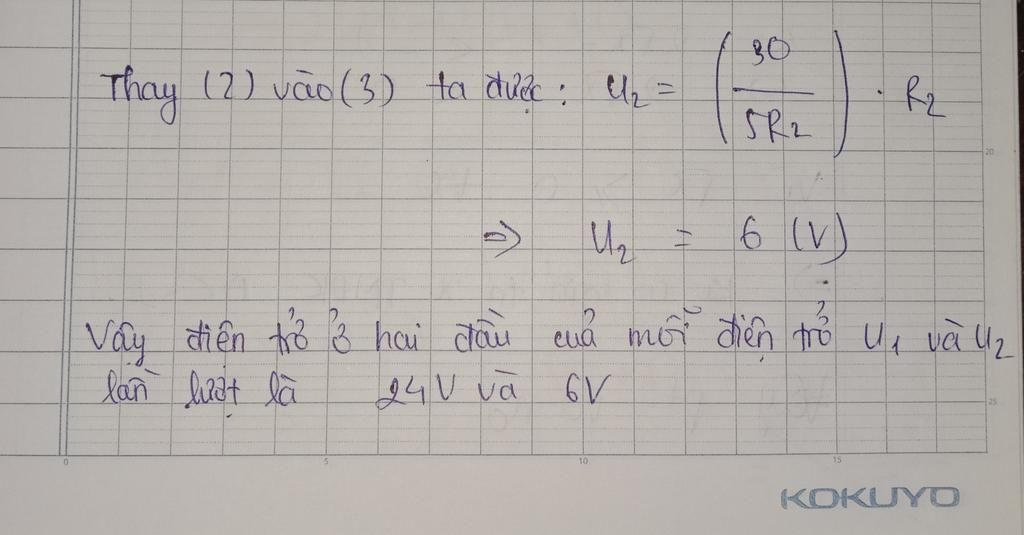 Thay (2) vào (3) ta được: U₂ = (30 / 5R₂) . R₂
20
=> U₂ = 6 (V)
Vậy điện trở ở hai đầu cuả mỗi điện trở U₁ và U₂
lần lượt là 24V và 6V
25
0 5 10 15
KOKUYO